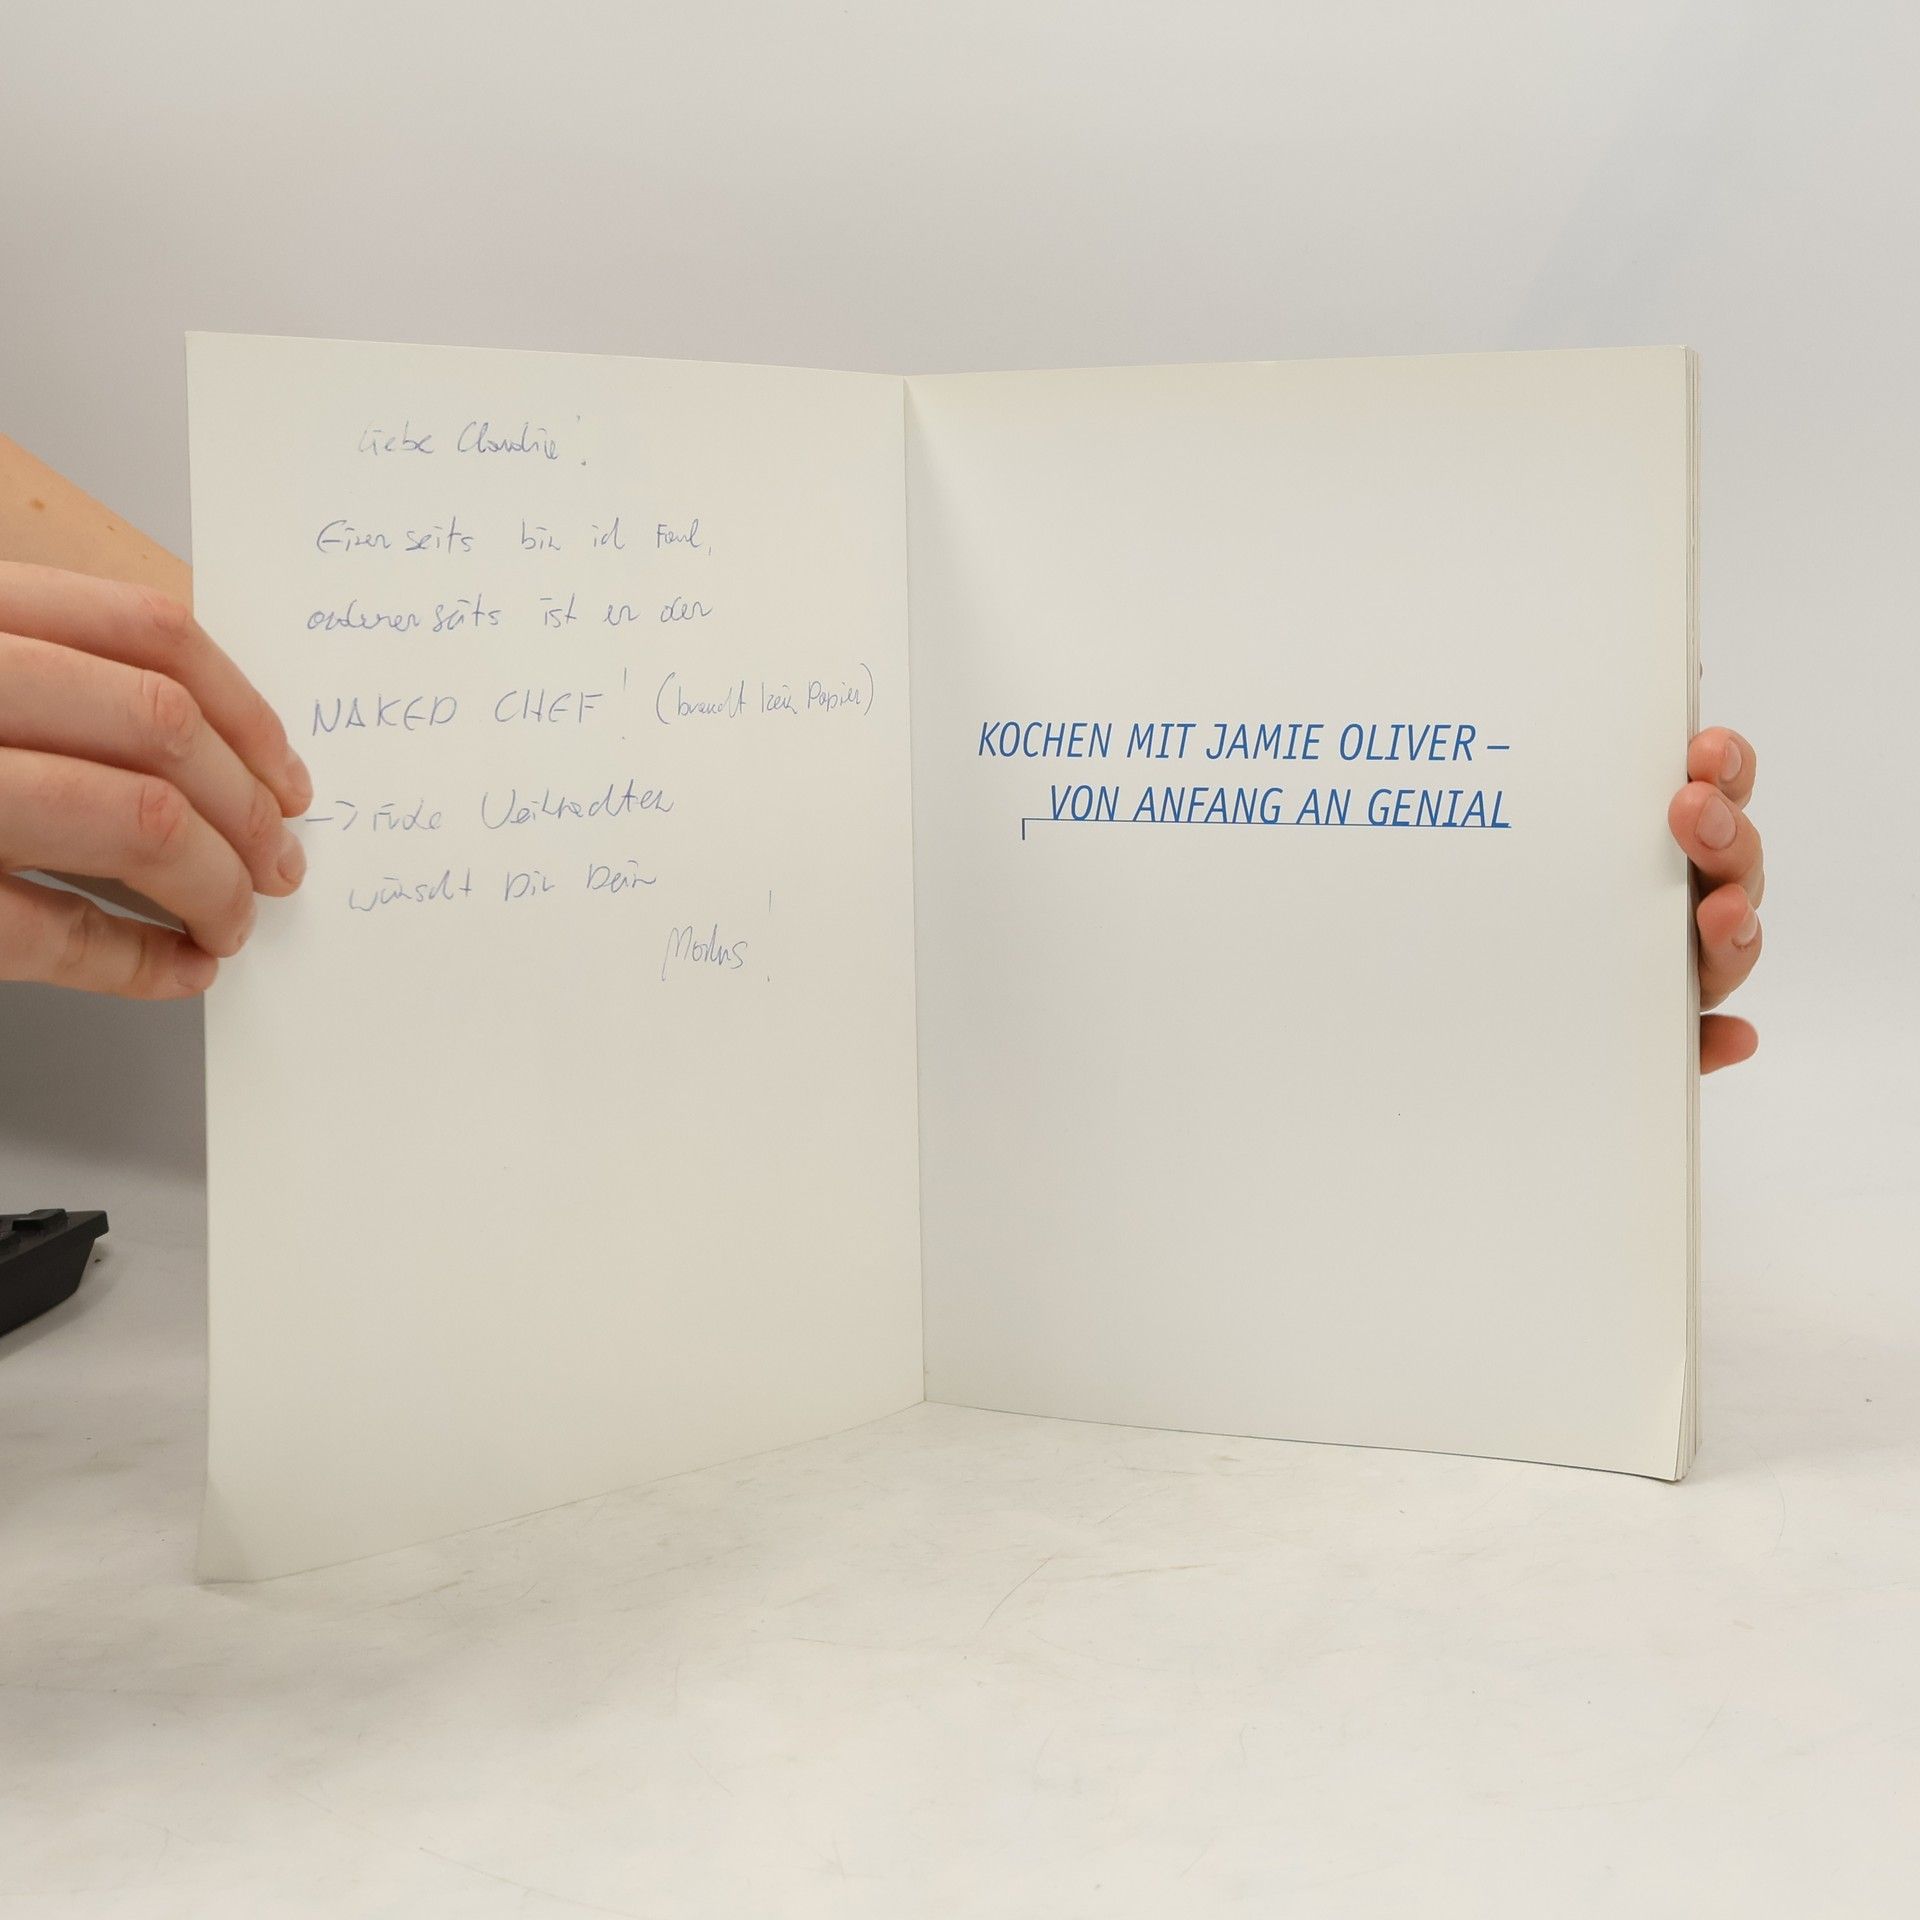 Liebe Claudia!
Einerseits bin ich Faul,
andererseits ist er der
NAKED CHEF! (braucht kein Papier)
-> Frohe Weihnachten
wünscht Dir Dein
Markus!
KOCHEN MIT JAMIE OLIVER –
VON ANFANG AN GENIAL